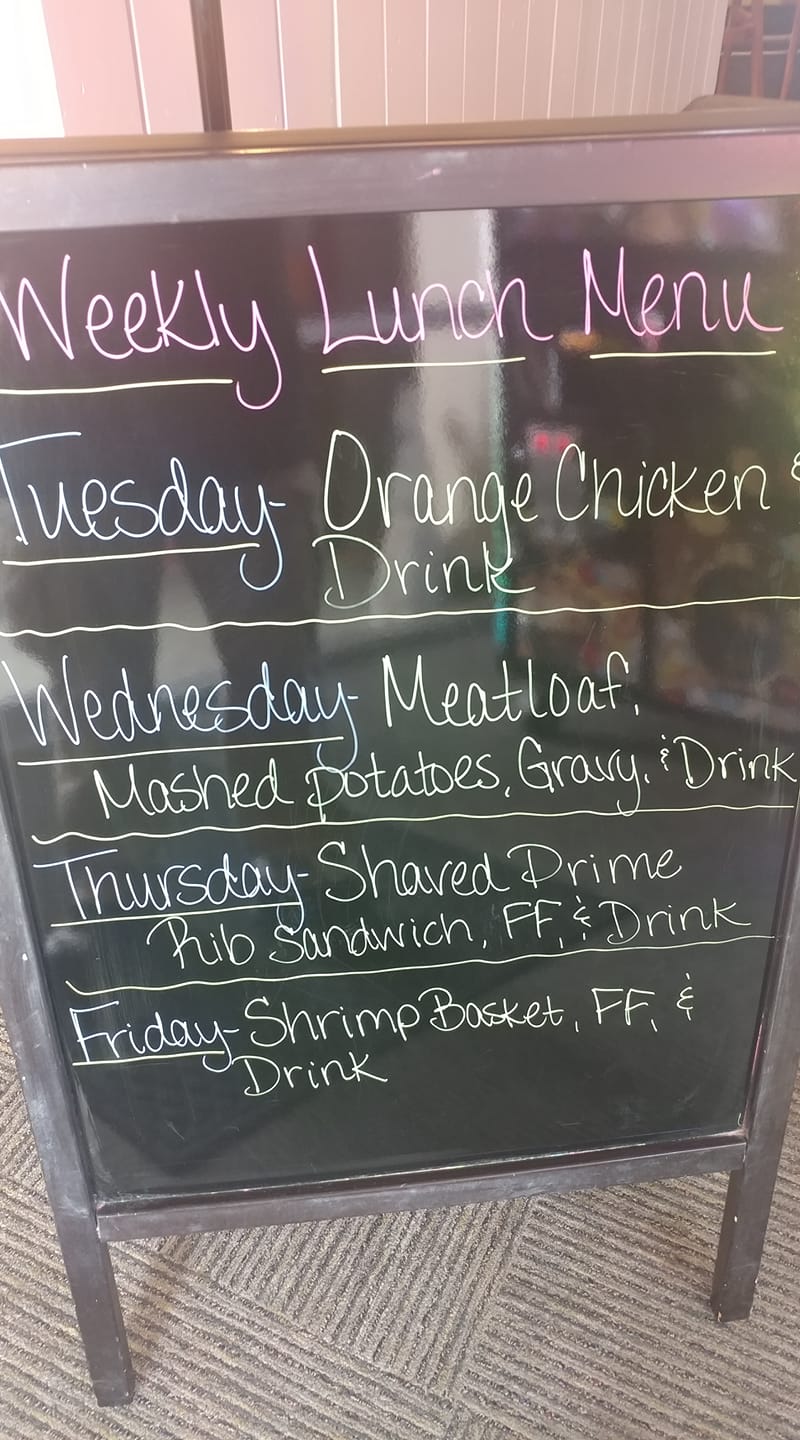 Weekly Lunch Menu
Tuesday- Orange Chicken &
Drink
Wednesday- Meatloaf,
Mashed potatoes, Gravy, & Drink
Thursday- Shaved Prime
Rib Sandwich, FF, & Drink
Friday- Shrimp Basket, FF, &
Drink